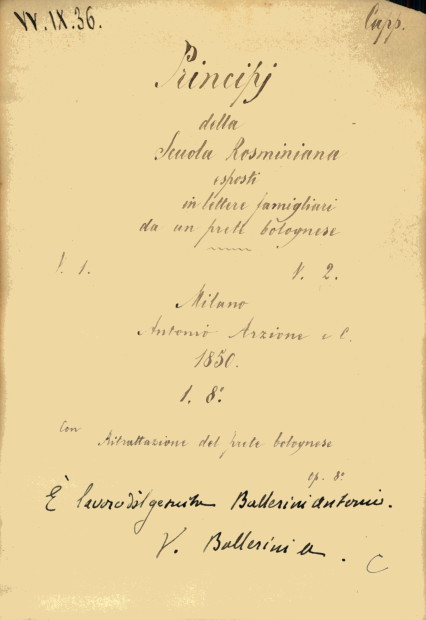 VV.IX.36.
Capp.
Principj
della
Scuola Rosminiana
esposti
in lettere famigliari
da un prete bolognese
V. 1. V. 2.
Milano
Antonio Arzione e C.
1850.
1. 8º
Con Ritrattazione del prete bolognese
op. 8º
È lavoro del gesuita Ballerini Antonio.
V. Ballerini A. C